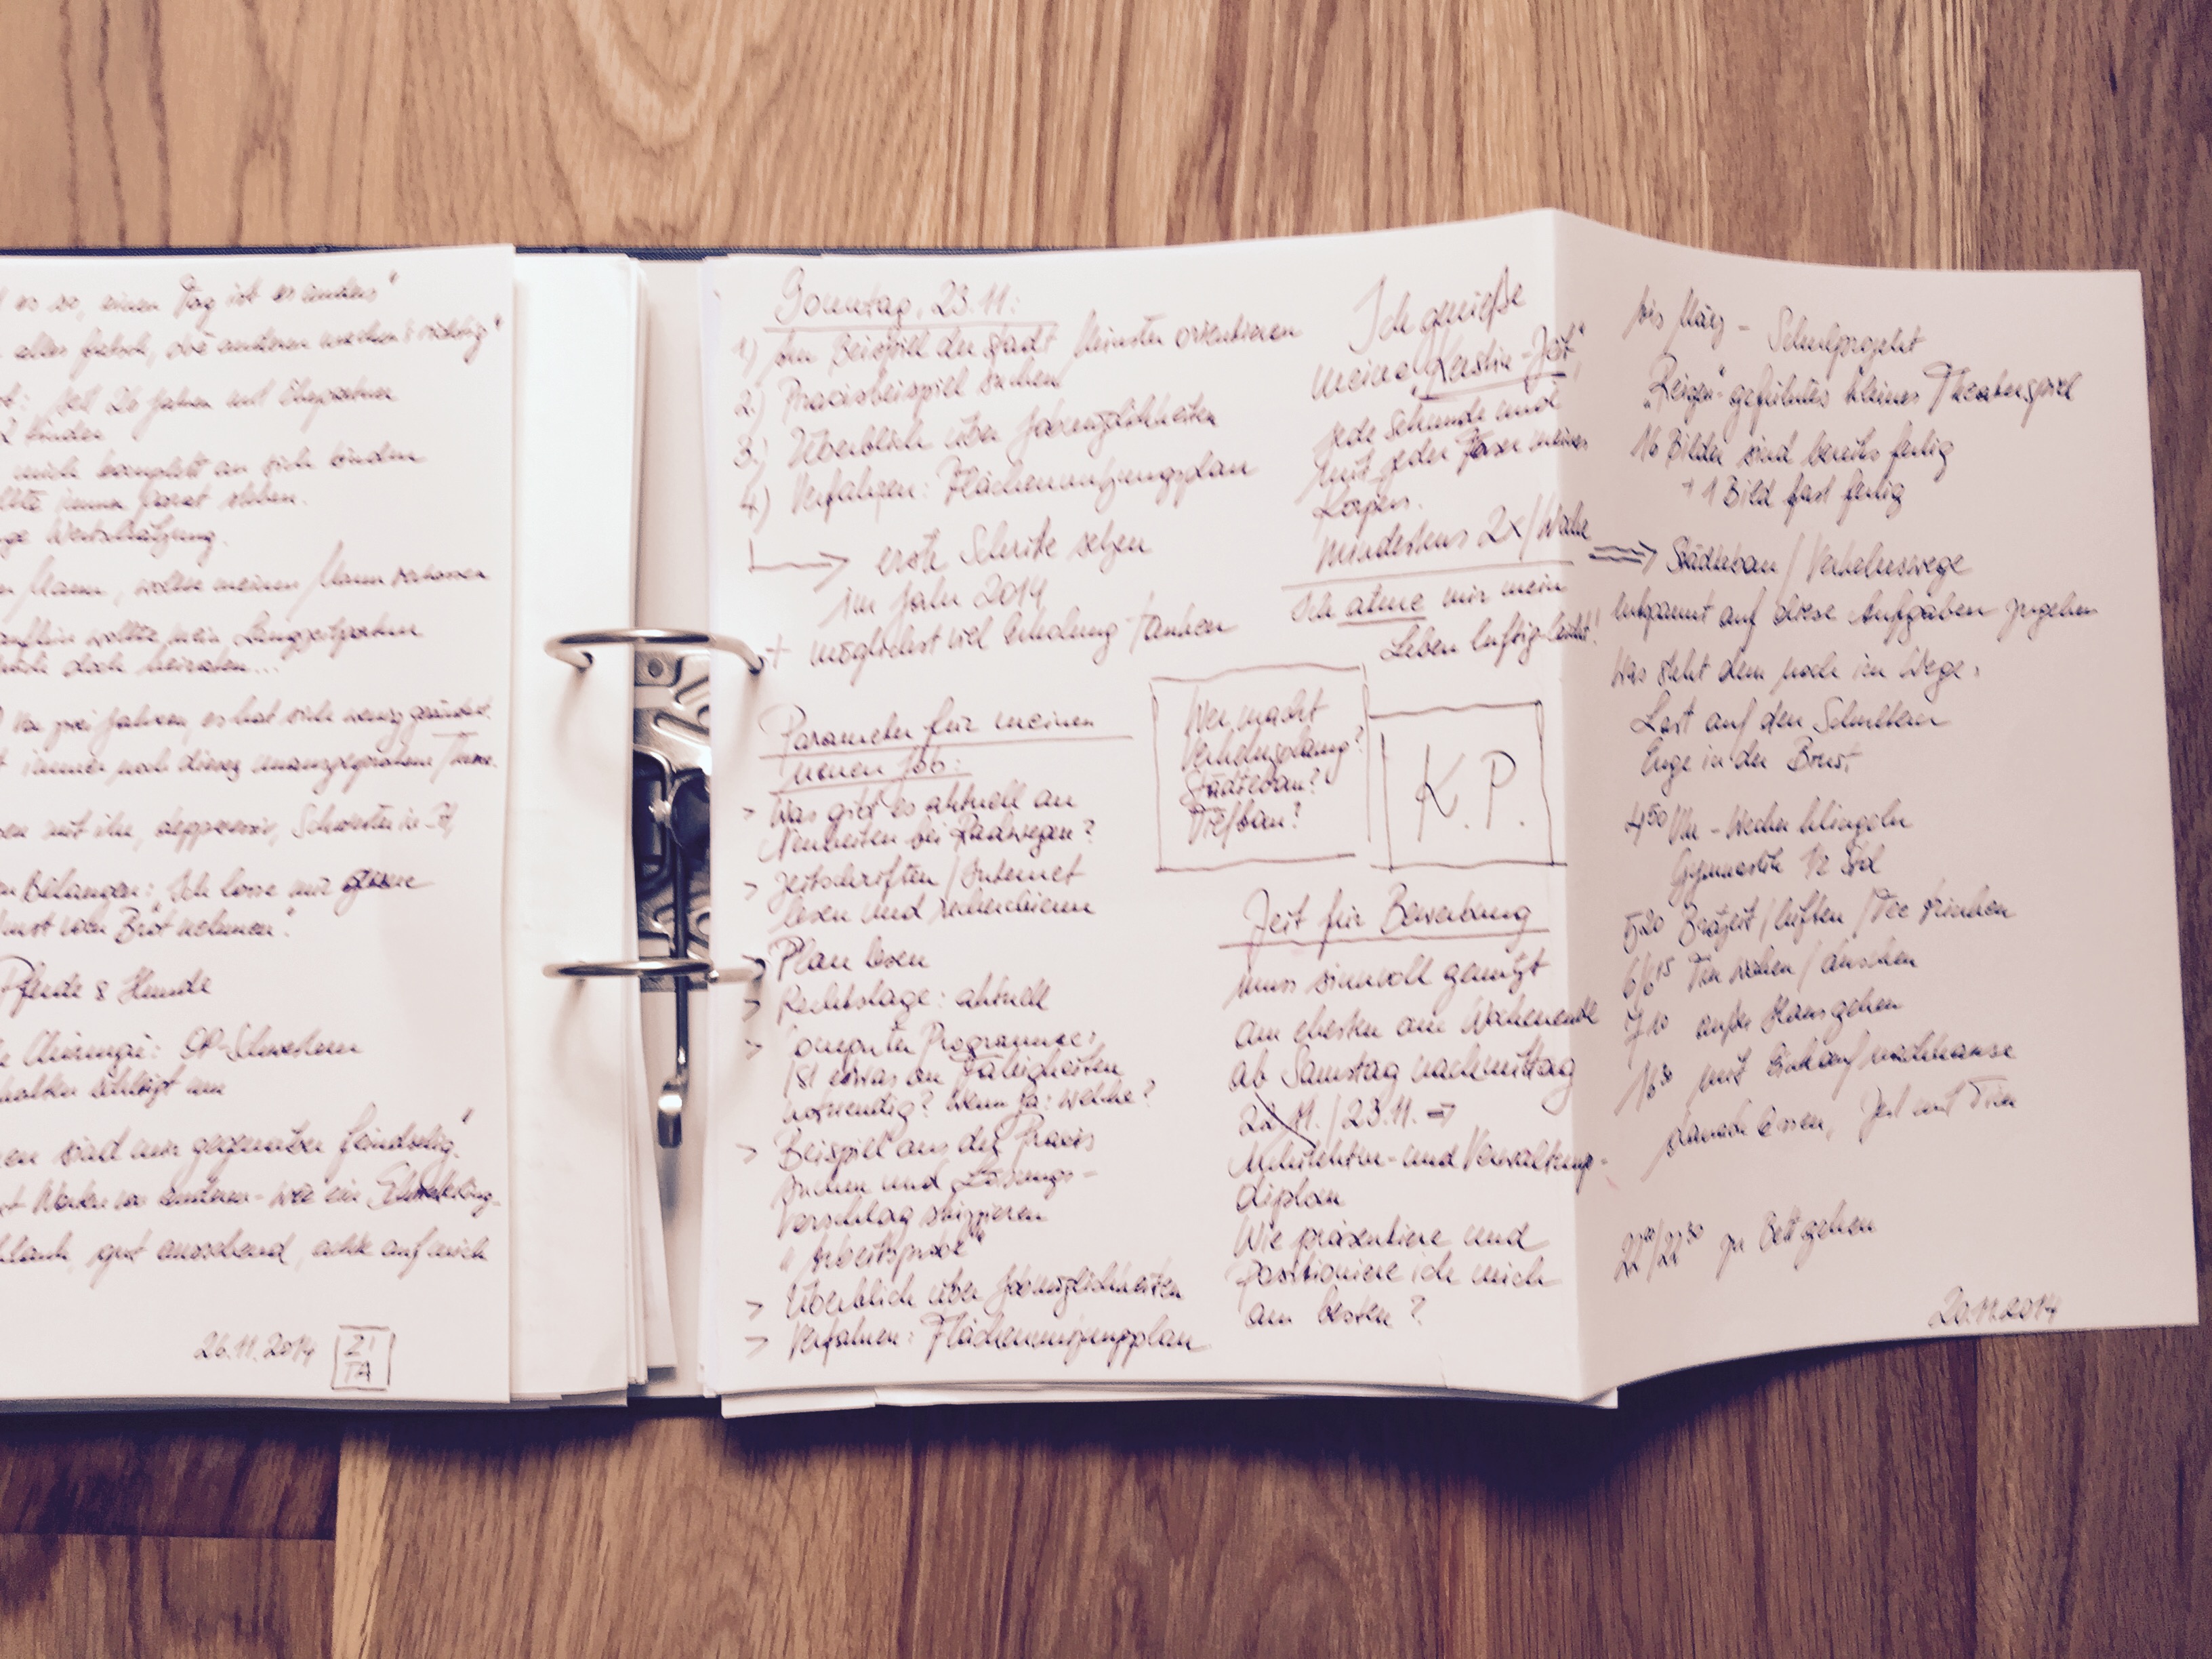 es so, einen Tag ist es anders"
alles falsch, die anderen machen's richtig"
seit 20 Jahren mit Ehepartner
2 Kinder
mich komplett an sich binden
immer parat stehen.
Wertschätzung.
Mann, wollte meinen Mann
wollte mein Langzeitpartner
mich doch heiraten...
vor zwei Jahren, es hat sich wenig geändert.
immer noch dieses unausgesprochene
mit ihr, aggressiv, Schwester in
Belangen: "Ich lasse mir
Wurst vom Brot nehmen".
Pferde & Hunde
Chirurgie: OP-Schwestern
sind mir gegenüber feindselig".
gut aussehend, achte auf mich
26.11.2014 ZI TA
Sonntag, 23.11.:
1) Am Beispiel der Stadt Münster orientieren
2.) Praxisbeispiel suchen
3.) Überblick über Jobmöglichkeiten
4.) Verfahren: Flächennutzungsplan
erste Schritte setzen
im Jahr 2014
+ möglichst viel Erholung tanken
Parameter für meinen
neuen Job:
> Was gibt es aktuell an
Neuheiten bei Radwegen?
> Zeitschriften / Internet
lesen und recherchieren
> Plan lesen
> Rechtslage: aktuell
> Computer Programme:
Ist etwas an Fähigkeiten
notwendig? Wenn ja: welche?
> Beispiel aus der Praxis
suchen und Lösungs-
vorschlag skizzieren
"Arbeitsprobe"
> Überblick über Jobmöglichkeiten
> Verfahren: Flächennutzungsplan
Ich genieße
meine "Kerstin-Zeit",
jede Sekunde und
mit jeder Faser meines
Körpers.
mindestens 2x/Woche
Ich atme mir mein
Leben luftig-leicht!
Wer macht
Verkehrsplanung?
Städtebau?
Tiefbau?
K.P.
Zeit für Bewerbung
muss sinnvoll genützt
am ehesten am Wochenende
ab Samstag nachmittag
22.11. / 23.11. ⇒
Architektur- und Verwaltungs-
diplom
Wie präsentiere und
positioniere ich mich
am besten?
bis März - Schulprojekt
"Reigen" - gefühltes kleines Theaterspiel
16 Bilder sind bereits fertig
+ 1 Bild fast fertig
⇒ Städtebau / Verkehrswege
Entspannt auf diese Aufgaben zugehen
Was steht dem noch im Wege:
Last auf den Schultern
Enge in der Brust
4⁵⁰ Uhr - Wecker klingeln
Gymnastik ½ Std
5²⁰ / lüften / Tee trinken
6/6¹⁵ Tim wecken /
7¹⁰ außer Haus gehen
16³⁰ mit Einkauf nachhause
danach Essen, Zeit mit Tim
22⁰⁰/22³⁰ zu Bett gehen
20.11.2014